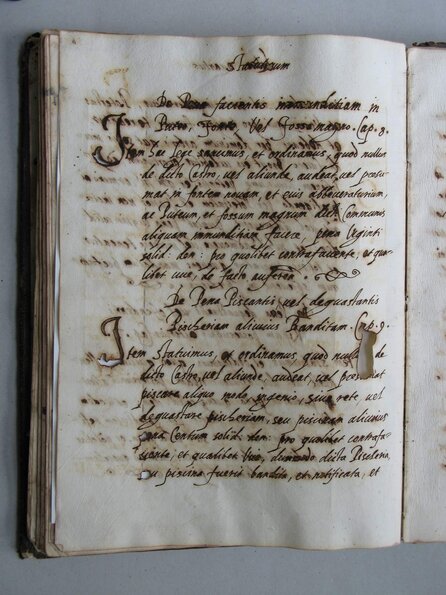 Statutum
De Pena facientis immunditiam in
Puteo, Fonte, Vel Fosso magno. Cap. 8.
Item hac lege sancimus, et ordinamus, quod nullus
de dicto Castro, vel aliunde, audeat, vel presu=
mat in fontem novam, et eius abbeveratorium,
ac Puteum, et fossum magnum dicti Communis
aliquam immunditiam facere, pena Viginti
solid: den: pro quolibet contrafaciente, et quo=
libet vice, de facto auferen
De Pena Piscantis, vel deguastantis
Pischeriam alicuius Banditam. Cap. 9.
Item Statuimus, et ordinamus quod nullus de
dicto Castro, vel aliunde, audeat, vel
piscare aliquo modo, ingenio, sive rete, vel
deguastare pischeriam, seu piscinam alicuius
Centum solid: den: pro quolibet contrafa=
ciente, et qualibet vice, dummodo dicta
piscina fuerit bandita, et notificata, et